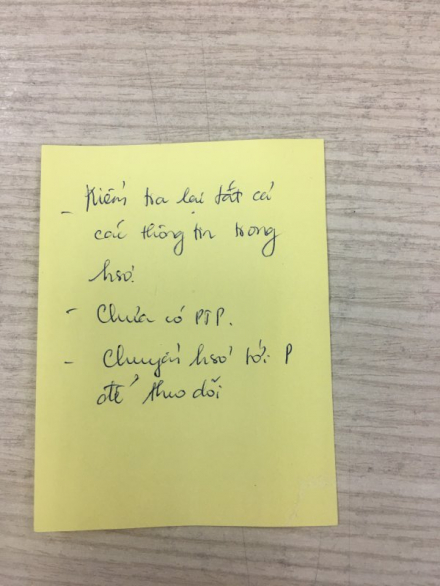 - Kiểm tra lại tất cả
các thông tin trong
hsơ.
- Chưa có PTP.
- Chuyển hsơ tới P
để theo dõi